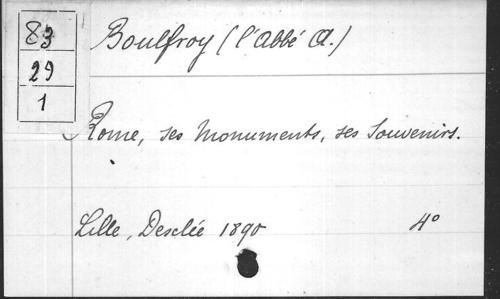 83
29
1
Boulfroy (l'Abbé A.)
Rome, ses Monuments, ses Souvenirs.
Lille, Desclée 1890 4°